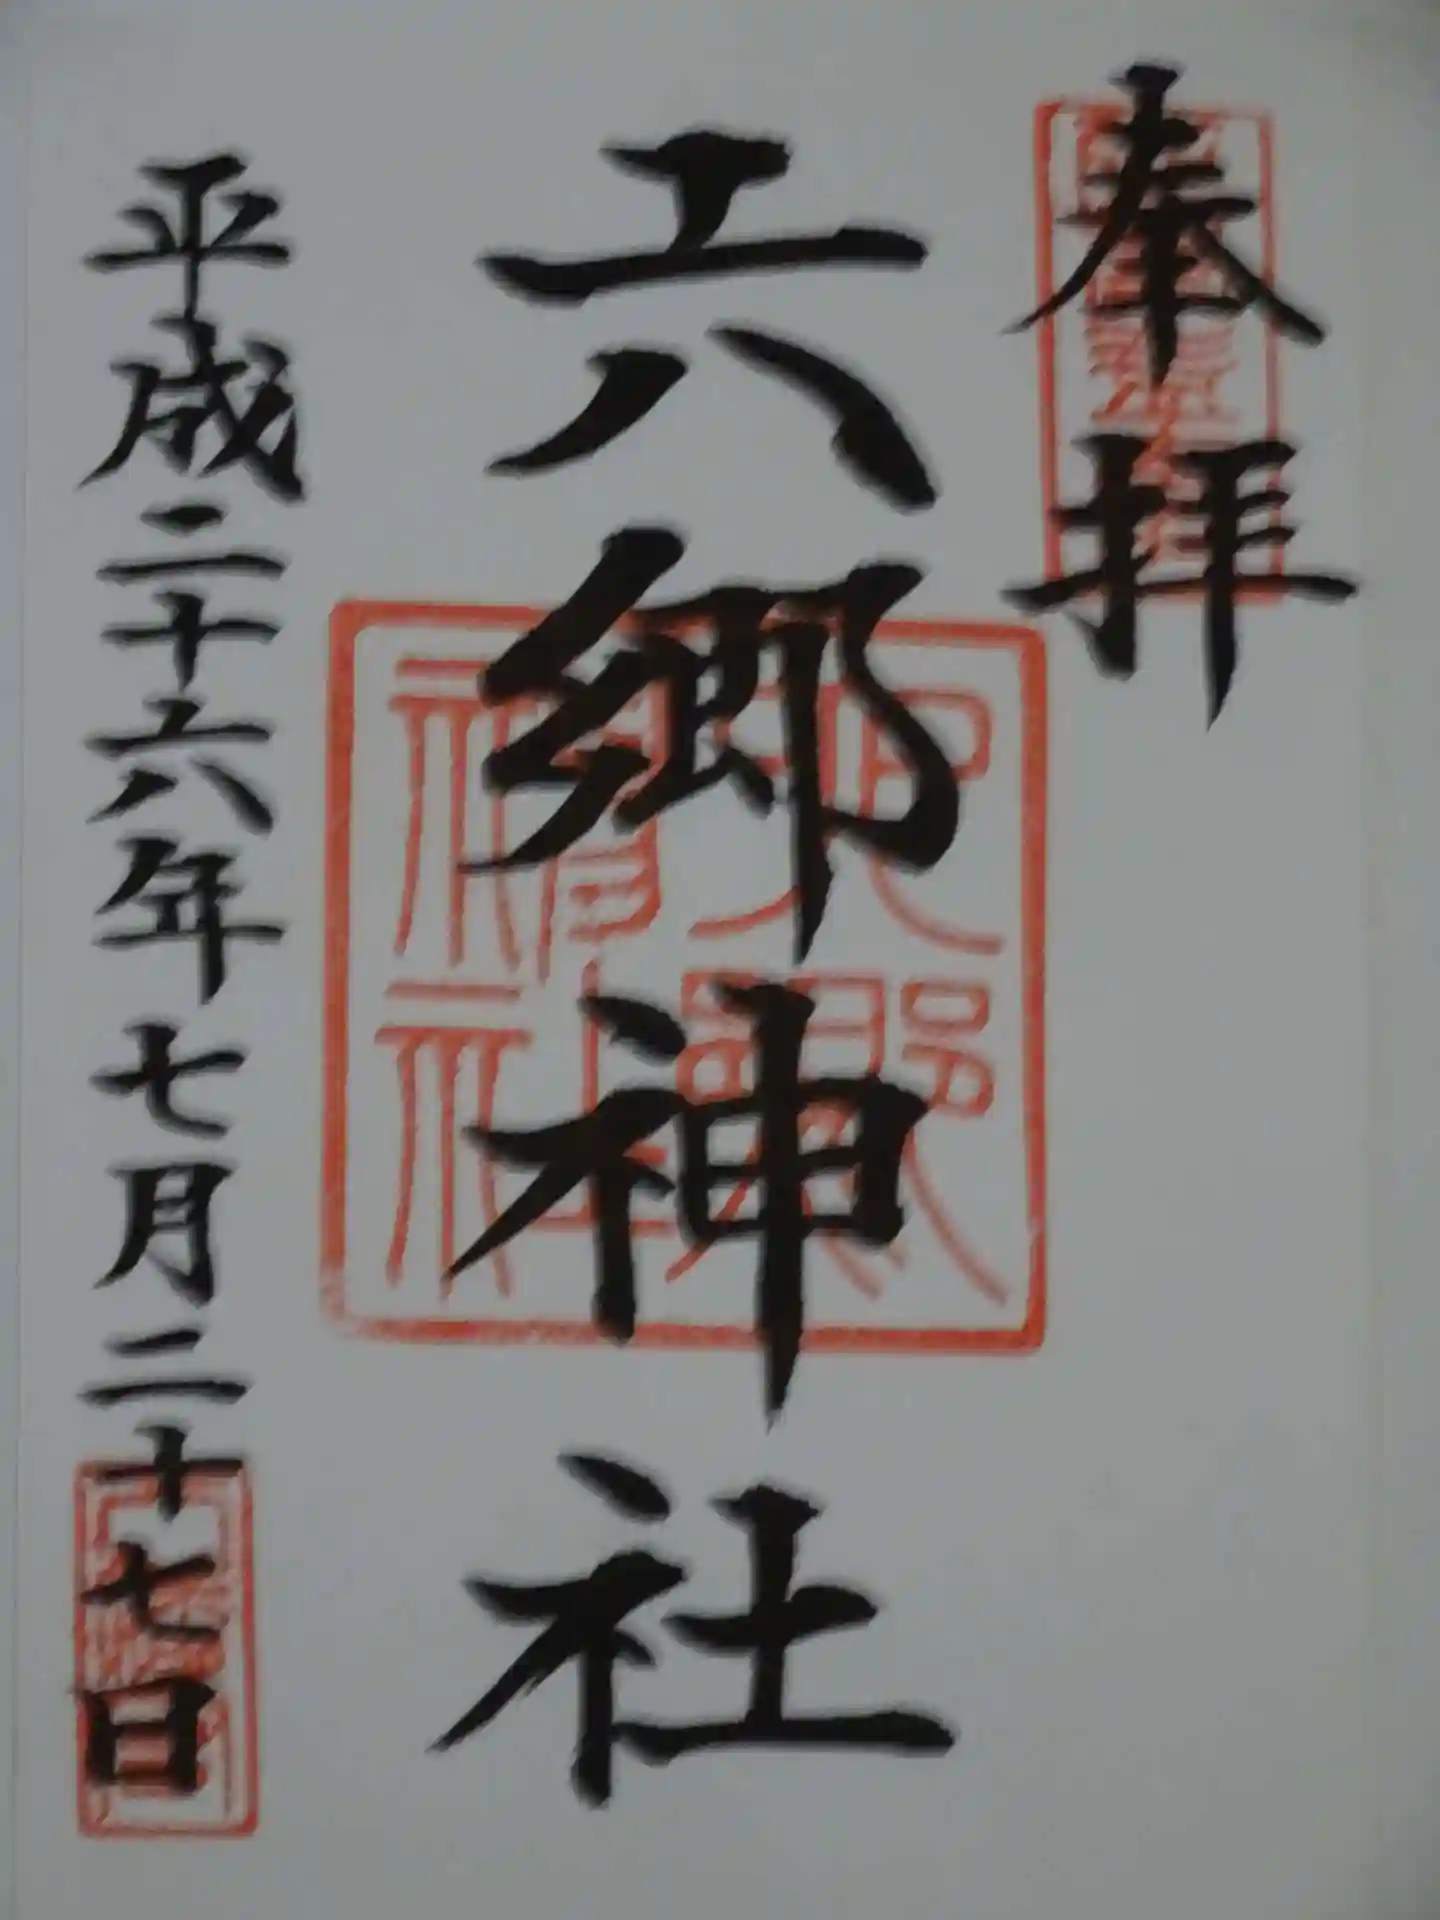 奉拝
六郷神社
平成二十六年七月二十七日
六郷神社